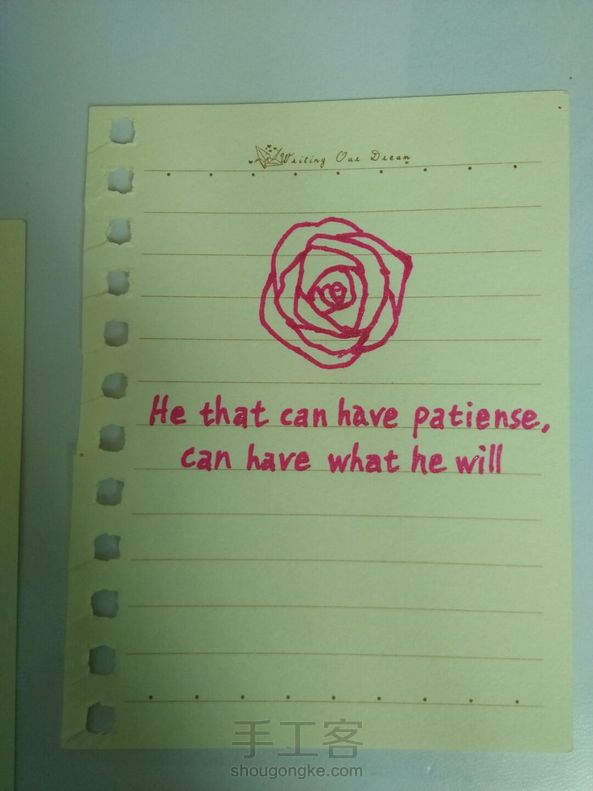 Writing Our Dream
He that can have patiense,
can have what he will
手工客
shougongke.com